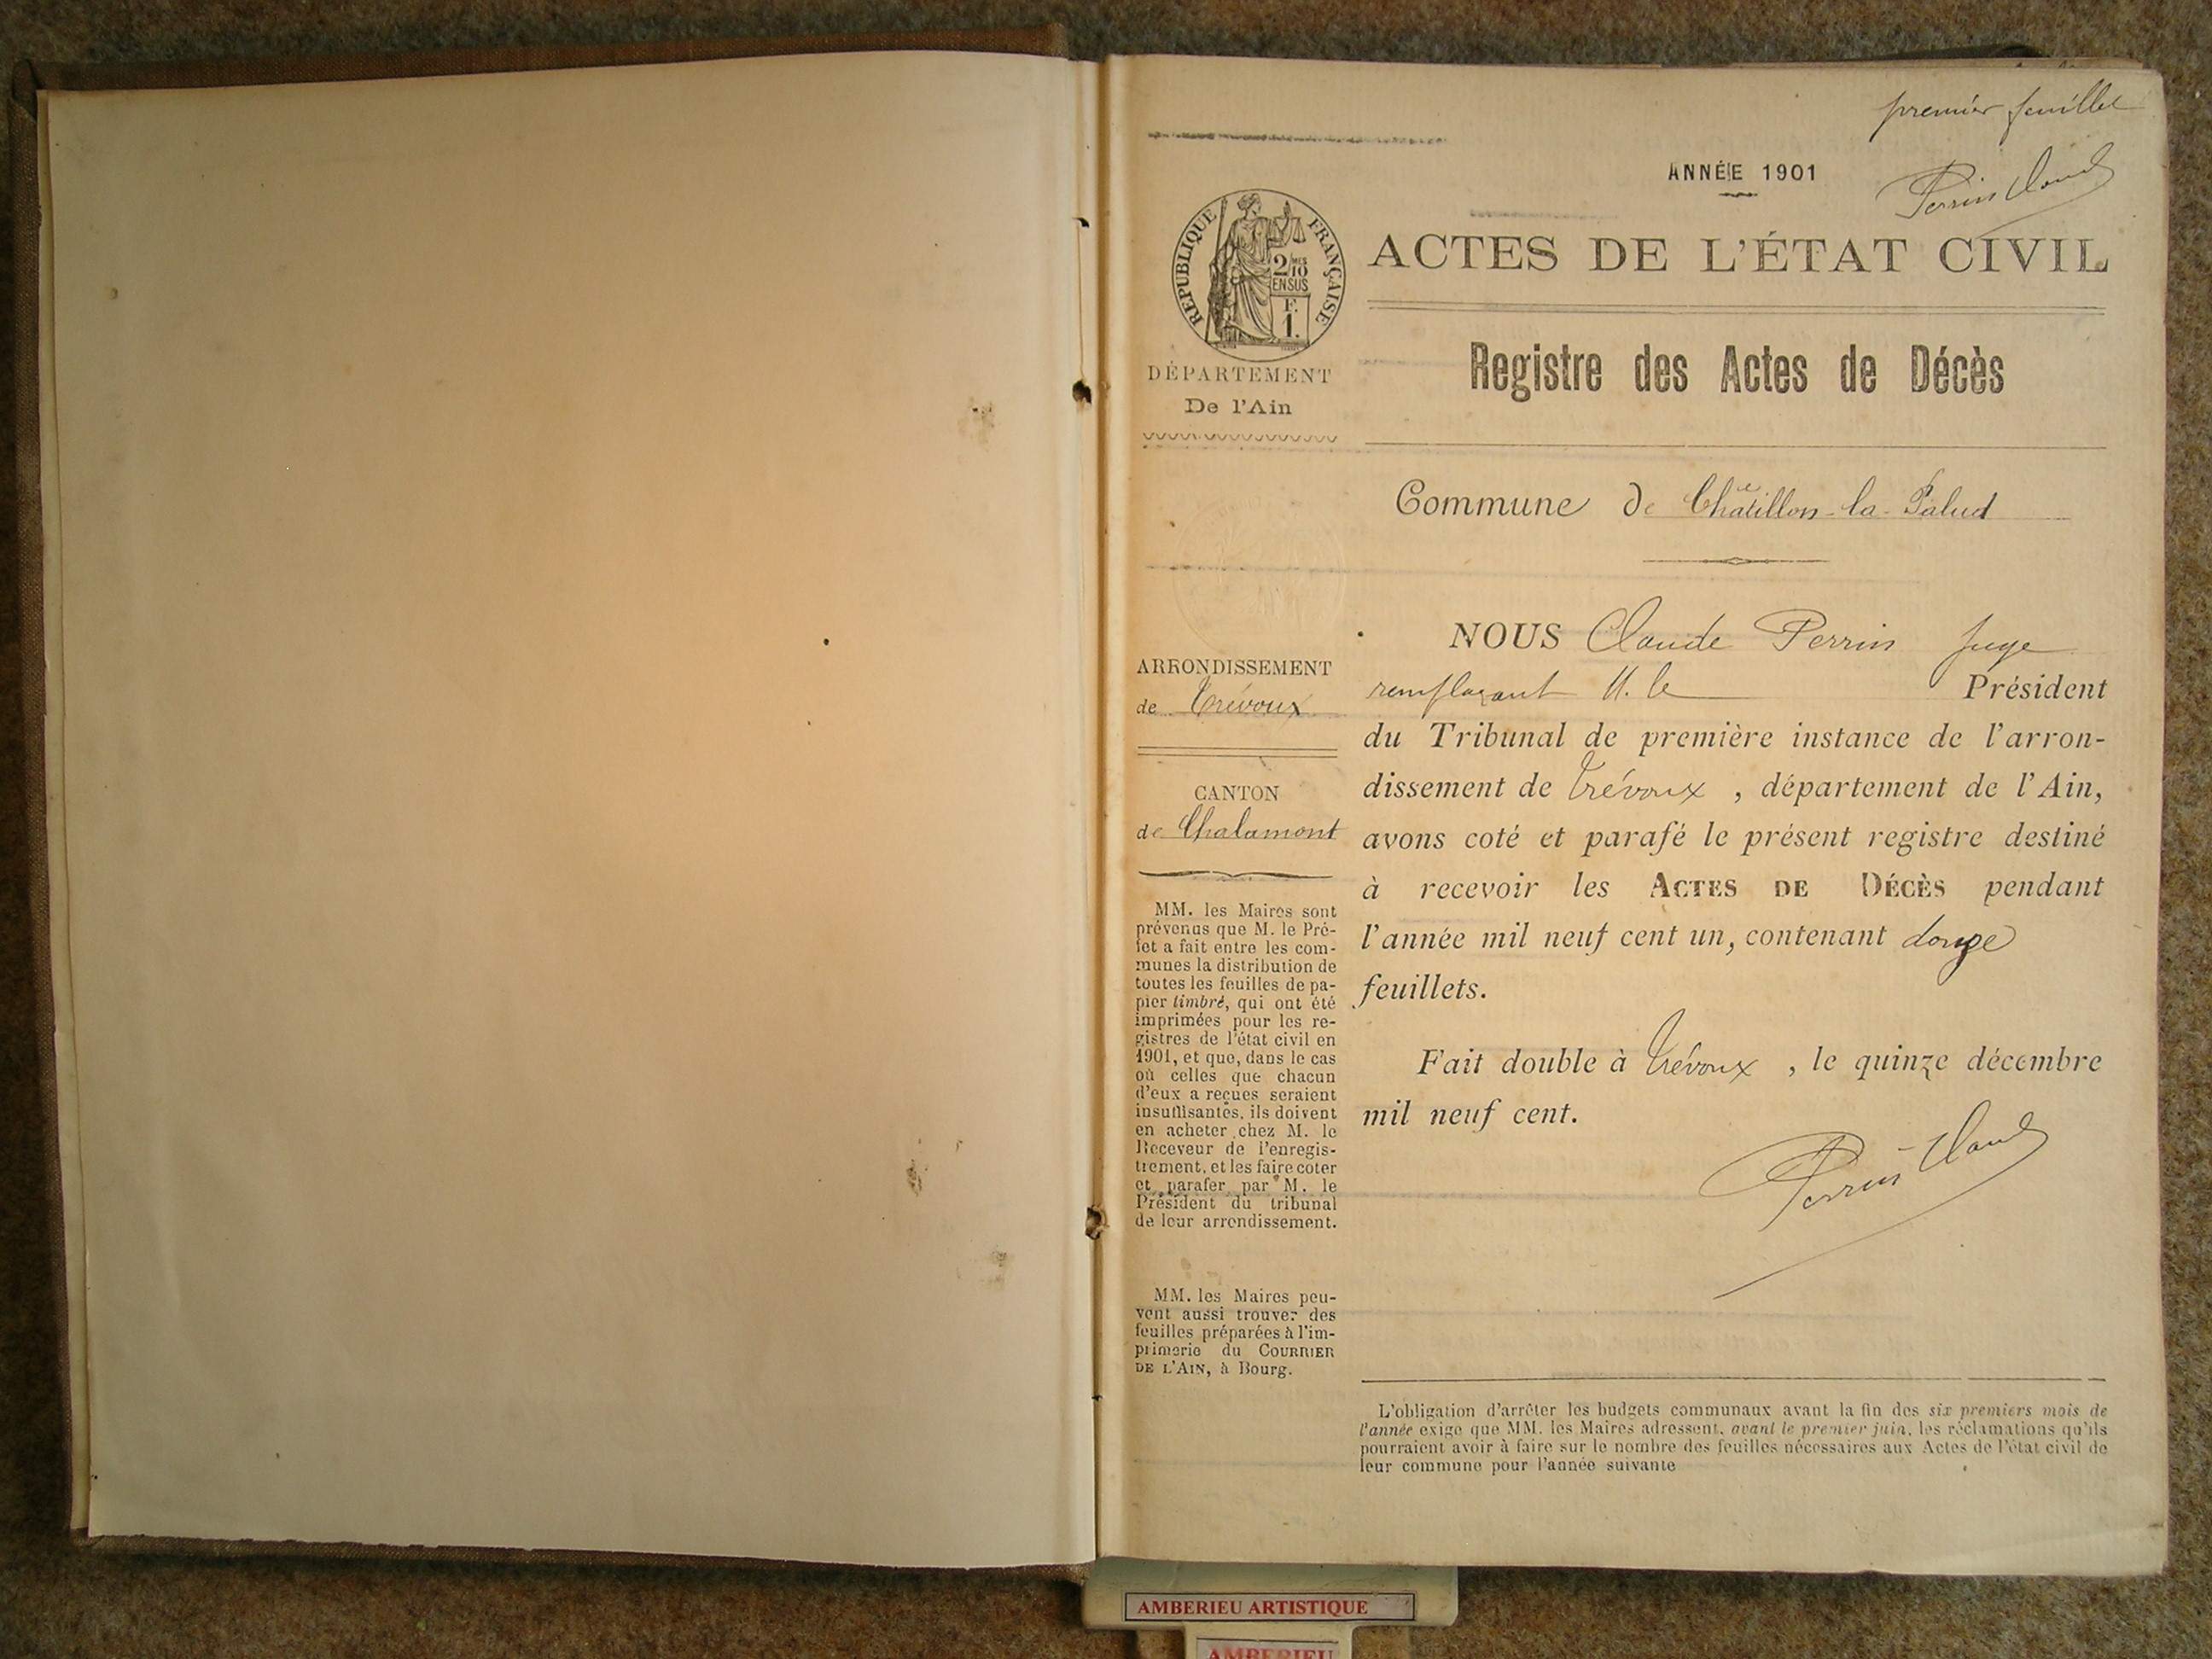 premier feuillet
Perrin Claude
ANNÉE 1901
ACTES DE L'ÉTAT CIVIL
RÉPUBLIQUE FRANÇAISE
2/10 MES
EN SUS
F.
1.
DÉPARTEMENT
De l'Ain
Registre des Actes de Décès
Commune de Châtillon-la-Palud
ARRONDISSEMENT
de Trévoux
CANTON
de Chalamont
MM. les Maires sont
prévenus que M. le Pré-
fet a fait entre les com-
munes la distribution de
toutes les feuilles de pa-
pier timbré, qui ont été
imprimées pour les re-
gistres de l'état civil en
1901, et que, dans le cas
où celles que chacun
d'eux a reçues seraient
insuffisantes, ils doivent
en acheter chez M. le
Receveur de l'enregis-
trement, et les faire coter
et parafer par M. le
Président du tribunal
de leur arrondissement.
MM. les Maires peu-
vent aussi trouver des
feuilles préparées à l'im-
primerie du COURRIER
DE L'AIN, à Bourg.
NOUS Claude Perrin Juge
remplaçant M. le Président
du Tribunal de première instance de l'arron-
dissement de Trévoux, département de l'Ain,
avons coté et parafé le présent registre destiné
à recevoir les ACTES DE DÉCÈS pendant
l'année mil neuf cent un, contenant douze
feuillets.
Fait double à Trévoux, le quinze décembre
mil neuf cent.
Perrin Claude
L'obligation d'arrêter les budgets communaux avant la fin des six premiers mois de
l'année exige que MM. les Maires adressent, avant le premier juin, les réclamations qu'ils
pourraient avoir à faire sur le nombre des feuilles nécessaires aux Actes de l'état civil de
leur commune pour l'année suivante
AMBERIEU ARTISTIQUE
AMBERIEU